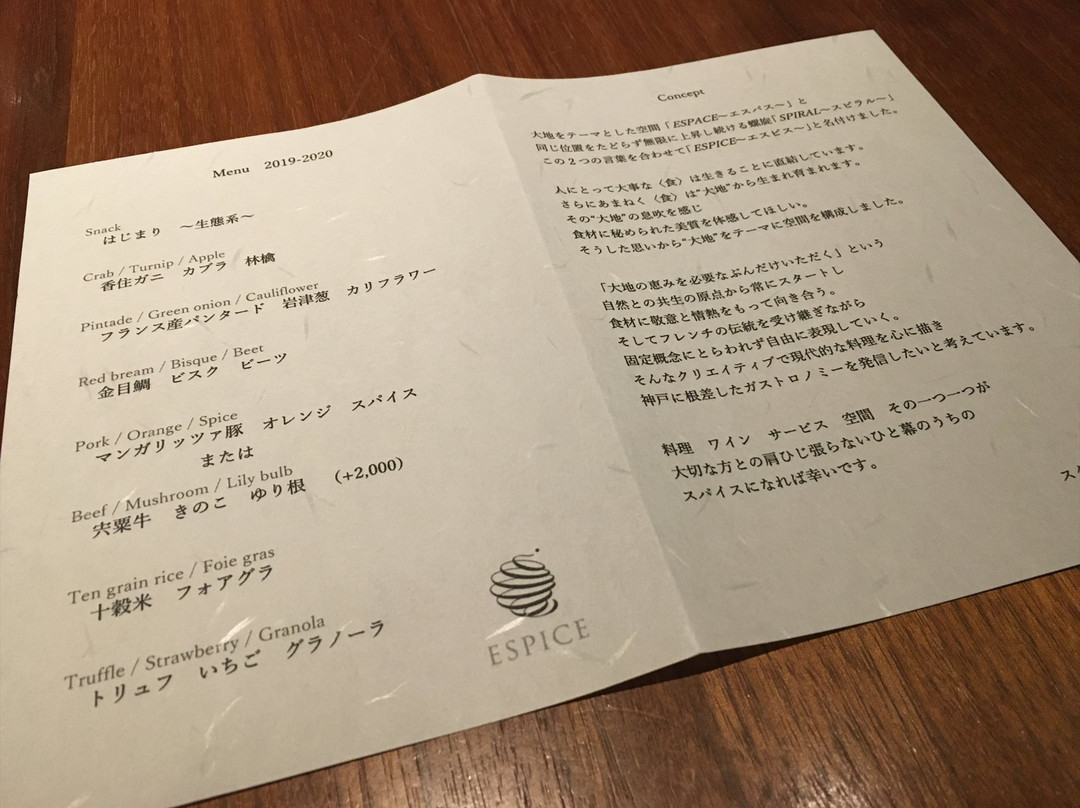 Menu 2019-2020
Snack
はじまり ～生態系～
Crab / Turnip / Apple
香住ガニ カブラ 林檎
Pintade / Green onion / Cauliflower
フランス産パンタード 岩津葱 カリフラワー
Red bream / Bisque / Beet
金目鯛 ビスク ビーツ
Pork / Orange / Spice
マンガリッツァ豚 オレンジ スパイス
または
Beef / Mushroom / Lily bulb
宍粟牛 きのこ ゆり根 (+2,000)
Ten grain rice / Foie gras
十穀米 フォアグラ
Truffle / Strawberry / Granola
トリュフ いちご グラノーラ
ESPICE
Concept
大地をテーマとした空間「ESPACE～エスパス～」と
同じ位置をたどらず無限に上昇し続ける螺旋「SPIRAL～スピラル～」
この2つの言葉を合わせて「ESPICE～エスピス～」と名付けました。
人にとって大事な〈食〉は生きることに直結しています。
さらにあまねく〈食〉は“大地”から生まれ育まれます。
その“大地”の息吹を感じ
食材に秘められた美質を体感してほしい。
そうした思いから“大地”をテーマに空間を構成しました。
「大地の恵みを必要なぶんだけいただく」という
自然との共生の原点から常にスタートし
食材に敬意と情熱をもって向き合う。
そしてフレンチの伝統を受け継ぎながら
固定概念にとらわれず自由に表現していく。
そんなクリエイティブで現代的な料理を心に描き
神戸に根差したガストロノミーを発信したいと考えています。
料理 ワイン サービス 空間 その一つ一つが
大切な方との肩ひじ張らないひと幕のうちの
スパイスになれば幸いです。